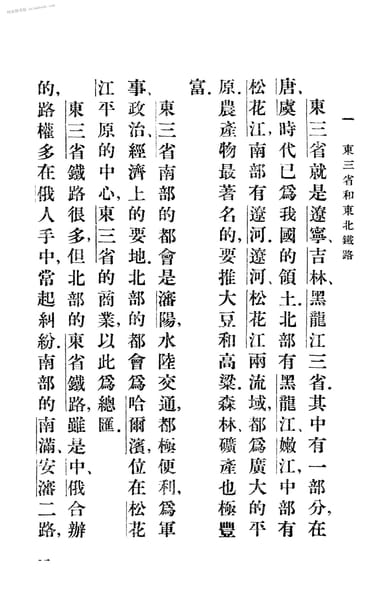 一 東三省和東北鐵路
東三省就是遼寧、吉林、黑龍江三省。其中有一部分，在
唐、虞時代已爲我國的領土。北部有黑龍江、嫩江，中部有
松花江，南部有遼河。遼河、松花江兩流域，都爲廣大的平
原。農產物最著名的，要推大豆和高粱。森林、礦產也極豐
富。
東三省南部的都會是瀋陽，水陸交通，都極便利，爲軍
事、政治、經濟上的要地。北部的都會爲哈爾濱，位在松花
江平原的中心，東三省的商業，以此爲總匯。
東三省鐵路很多，但北部的東省鐵路，雖是中、俄合辦
的，路權多在俄人手中，常起糾紛。南部的南滿、安瀋二路，